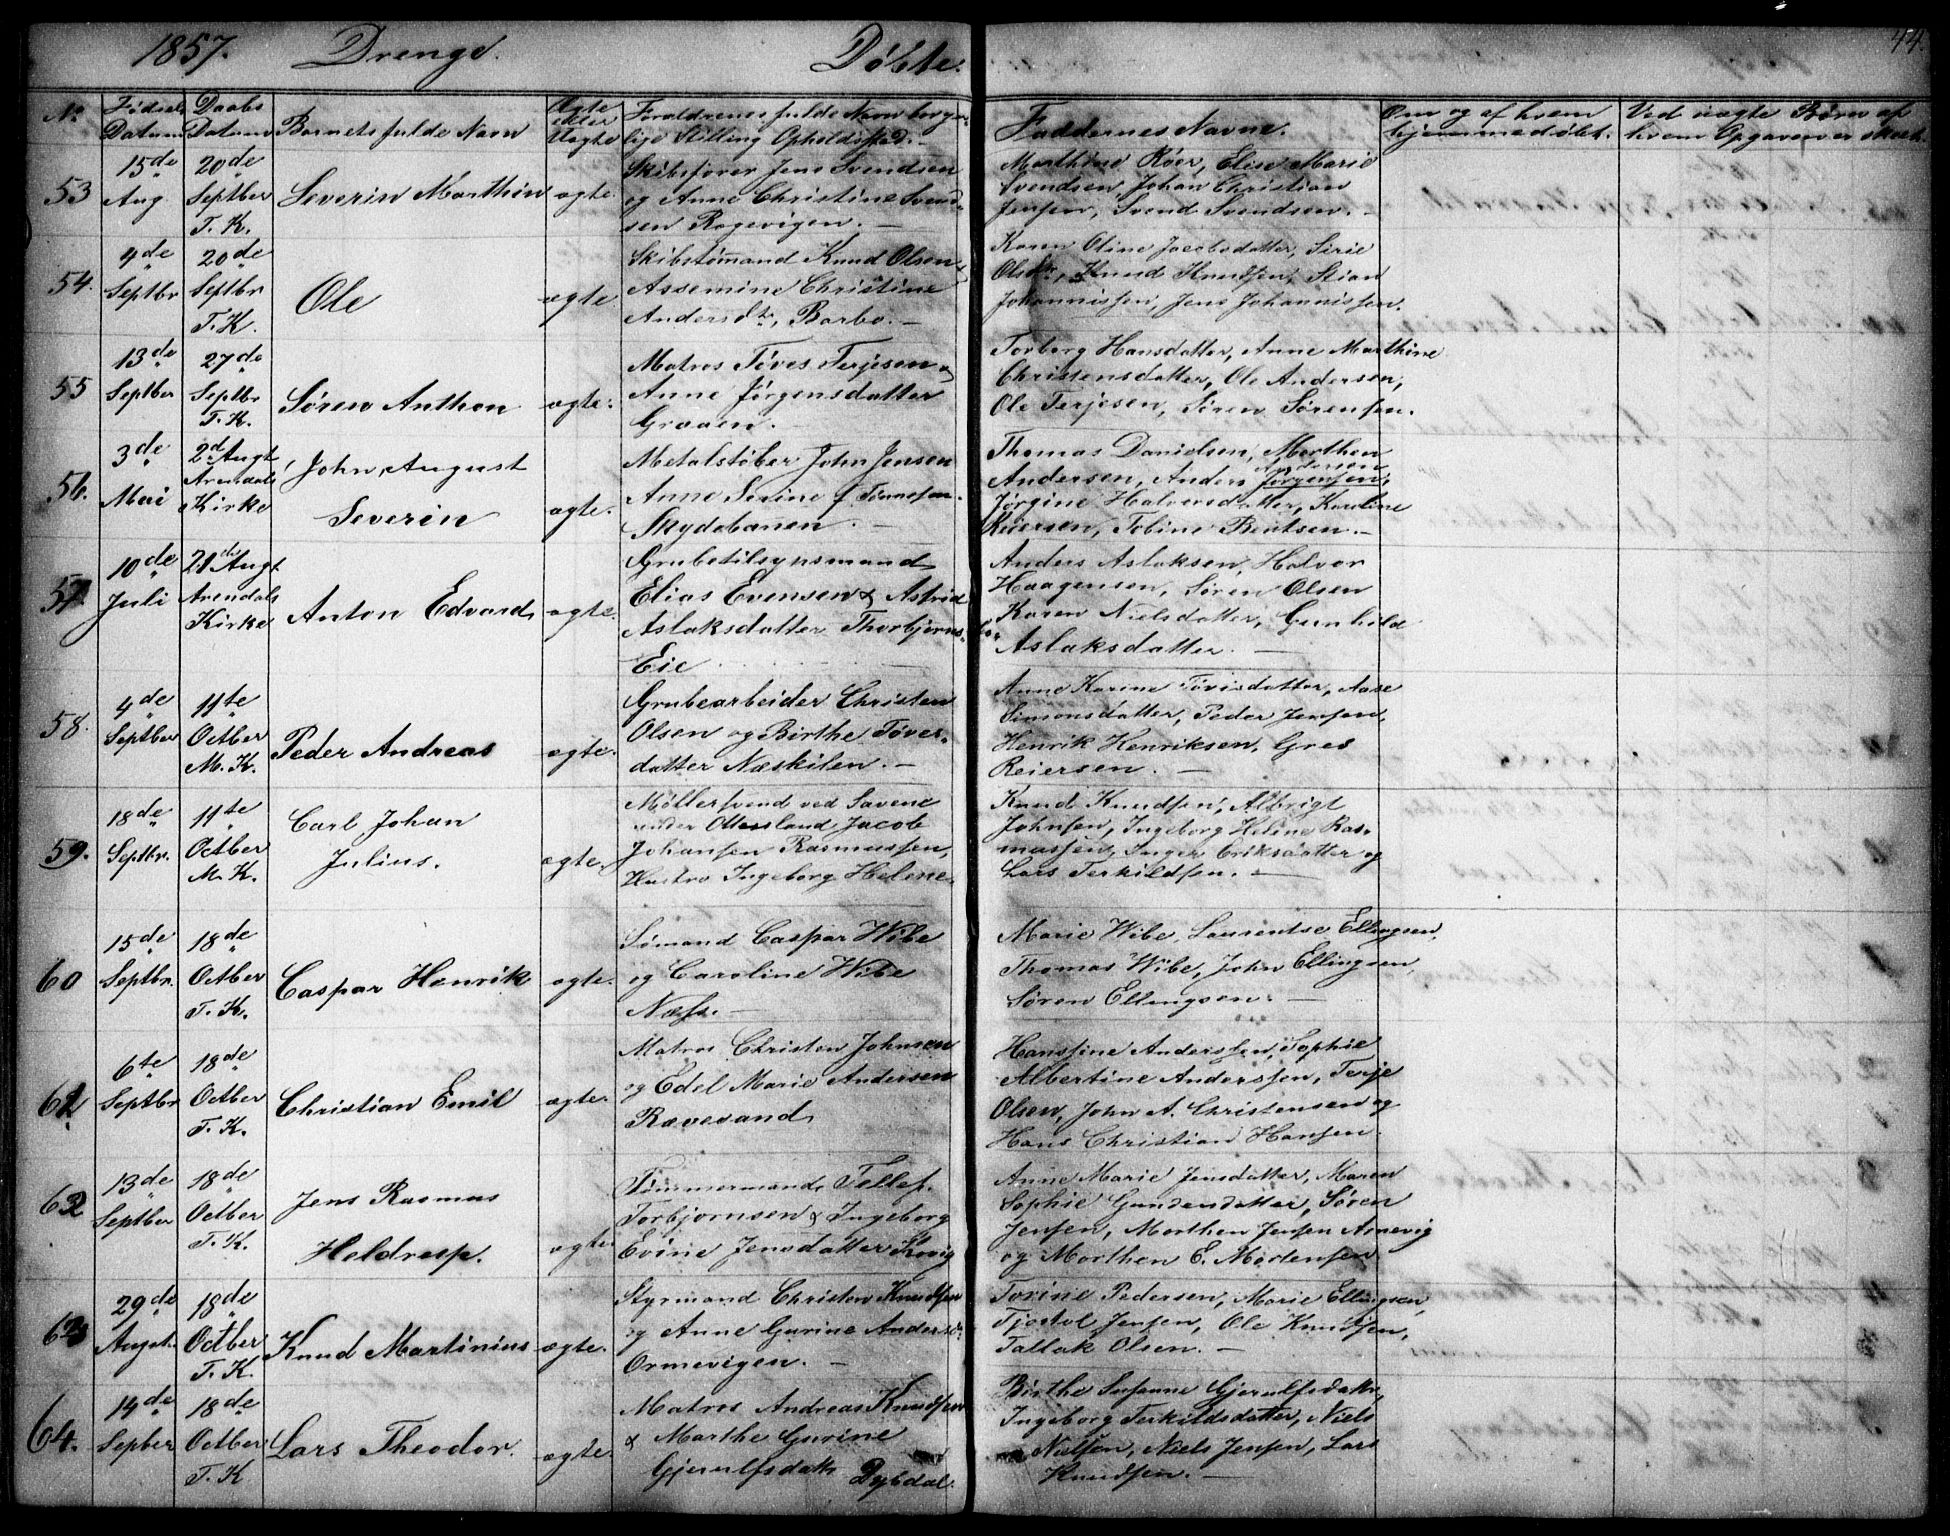 1857. Drenge Døbte. 44.
No Fødsels Datum Daabs Datum Barnets fulde Navn Ægte eller Uægte Forældrenes fulde Navn borger-
lige Stilling Opholdssted.
Faddernes Navne. Om og af hvem hjemmedøbt. Ved uægte Børn af hvem Opgaven er skeet.
53 15de Aug. 20de Septber T. K. Severin Marthin ægte
Skibsfører Jens Svendsen
og Anne Christine Svend-
sen Ragevigen.
Marthine Röer, Elise Marie
Svendsen, Johan Christian
Jensen, Svend Svendsen.
54. 4de Septbr 20de Septbr T. K. Ole ægte
Skibstømmand Knud Olsen &
Assemine Christine
Andersdtr, Barbo.
Karen Oline Jacobsdatter, Sirie
Olsdtr, Knud Knudsen, Stian
Johannissen, Jens Johannissen.
55 13de Septber 27de Septbr T. K. Søren Anthon ægte.
Matros Töves Terjesen &
Anne Jörgensdatter
Graaen.
Torborg Hansdatter, Anne Marthine
Christensdatter, Ole Andersen,
Ole Terjesen, Søren Sørensen.
56. 3de Mai 2d Augt Arendals Kirke John August
Severin ægte.
Metalstøber John Jensen
Anne Serine f. Tönnesen
Skydebanen.
Thomas Danielsen, Morthen
Andersen, Anders Jörgensen, Andersen
Jørgine Halvorsdatter, Karoline
Reiersen, Tobine Bentsen.
57. 10de Juli 21de Augt Arendals Kirke Anton Edvard ægte.
Grubetilsynsmand
Elias Evensen & Astrid
Aslaksdatter Thorbjørns-
Eie
Anders Aslaksen, Halvor
Haagensen, Søren Olsen
Karen Nielsdatter, Gunhild
Aslaksdatter.
58. 4de Septber 11te Octber M. K. Peder Andreas ægte.
Grubearbeider Christen
Olsen og Birthe Töves-
datter Næskilen.
Anne Karine Tövisdatter, Aase
Simonsdatter, Peder Jensen,
Henrik Henriksen, Gres
Reiersen.
59. 18de Septbr. 11te Octber M. K. Carl Johan
Julius. ægte.
Møllersvend ved Savene
under Ottersland Jacob
Johansen Rasmussen,
Hustro Ingeborg Helene.
Knud Knudsen, Albrigt
Johnsen, Ingeborg Helene Ras-
mussen, Inger Eriksdatter og
Lars Terkildsen.
60 15de Septbr. 18de Octber T. K. Caspar Henrik ægte.
Sømand Caspar Wibe
og Caroline Wibe
Næss.
Marie Wibe, Laurentse Ellingsen,
Thomas Wibe, John Ellingsen,
Søren Ellingsen.
61. 6te Septbr 18de Octber T. K. Christian Emil ægte
Matros Christen Johnsen
og Edel Marie Andersen
Rævesand
Hansine Anderssen, Sophie
Albertine Anderssen, Terje
Olsen, John A. Christensen og
Hans Christian Hansen.
62 13de Septber 18de Octber T. K. Jens Rasmus
Heldresp. ægte
Tømmermand Tellef
Torbjørnsen & Ingeborg
Evine Jensdatter Kovig
Anne Marie Jensdatter, Maren
Sophie Gundersdatter, Søren
Jensen, Morthen Jensen Arnevig
og Morthen E. Mortensen
63 29de Augst. 18de Octber T. K. Knud Martinius ægte.
Styrmand Christen Knudsen
og Anne Gurine Anders-
Ormevigen.
Torine Pedersen, Marie Ellingsen,
Tjostol Jensen, Ole Knudsen,
Tallak Olsen.
64. 14de Sepber 18de Octber T. K Lars Theodor. ægte.
Matros Andreas Knudsen
& Marthe Gurine
Gjerulfsdatter Dybdal.
Birthe Susanne Gjerulfsdatter,
Ingeborg Terkildsdatter, Niels
Nielsen, Niels Jensen, Lars
Knudsen.